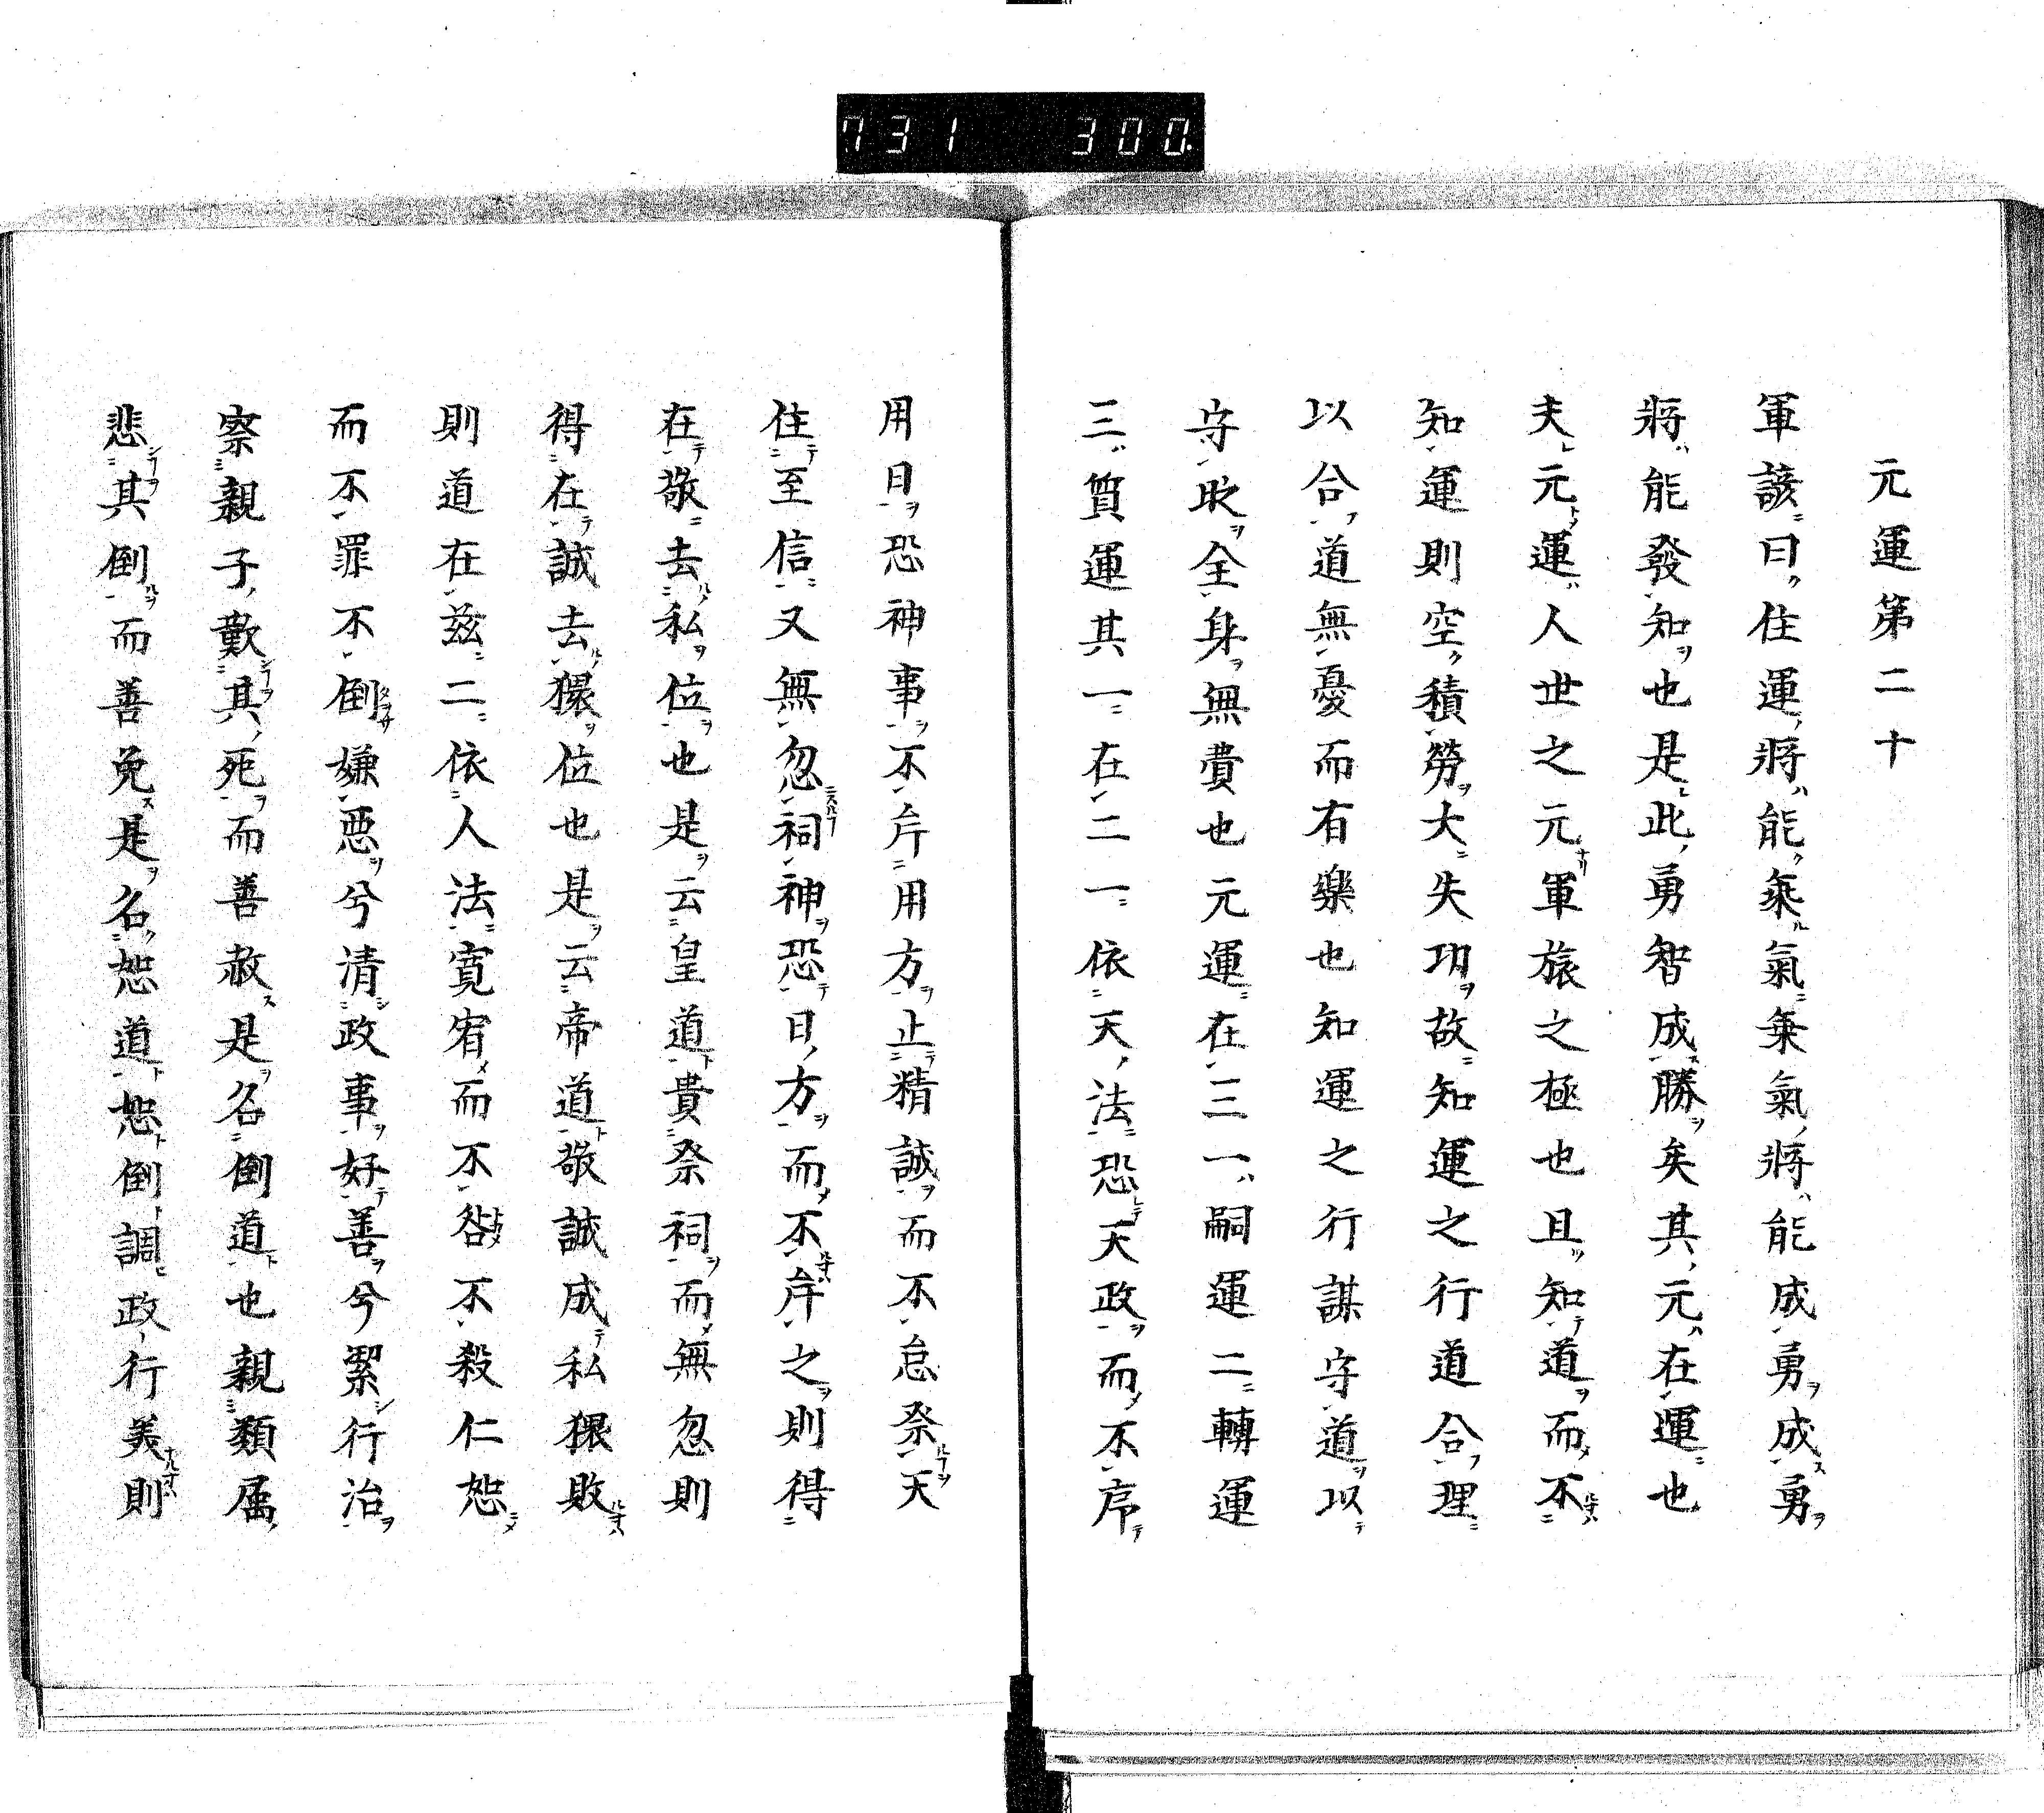 731 300.
元運第二十
軍談曰住運將能乘氣乗氣將能成勇成勇
將能發知也是此勇智成勝矣其元在運也
夫元運人世之元軍旅之極也且知道而不
知運則空積勞大失功故知運之行道合理
以合道無憂而有樂也知運之行謀守道以
守政全身無費也元運在三一嗣運二轉運
三質運其一在二一依天法恐天政而不序
用日恐神事不斥用方止精誠而不怠祭天
住至信又無忽祠神恐日方而不斥之則得
在敬去私位也是云皇道貴祭祠而無忽則
得在誠去猥位也是云帝道敬誠成私猥敗
則道在茲二依人法寛宥而不咎不殺仁恕
而不罪不倒嫌悪兮清政事好善兮絜行治
察親子歎其死而善赦是名倒道也親類属
悲其倒而善免是名恕道恕倒調政行美則